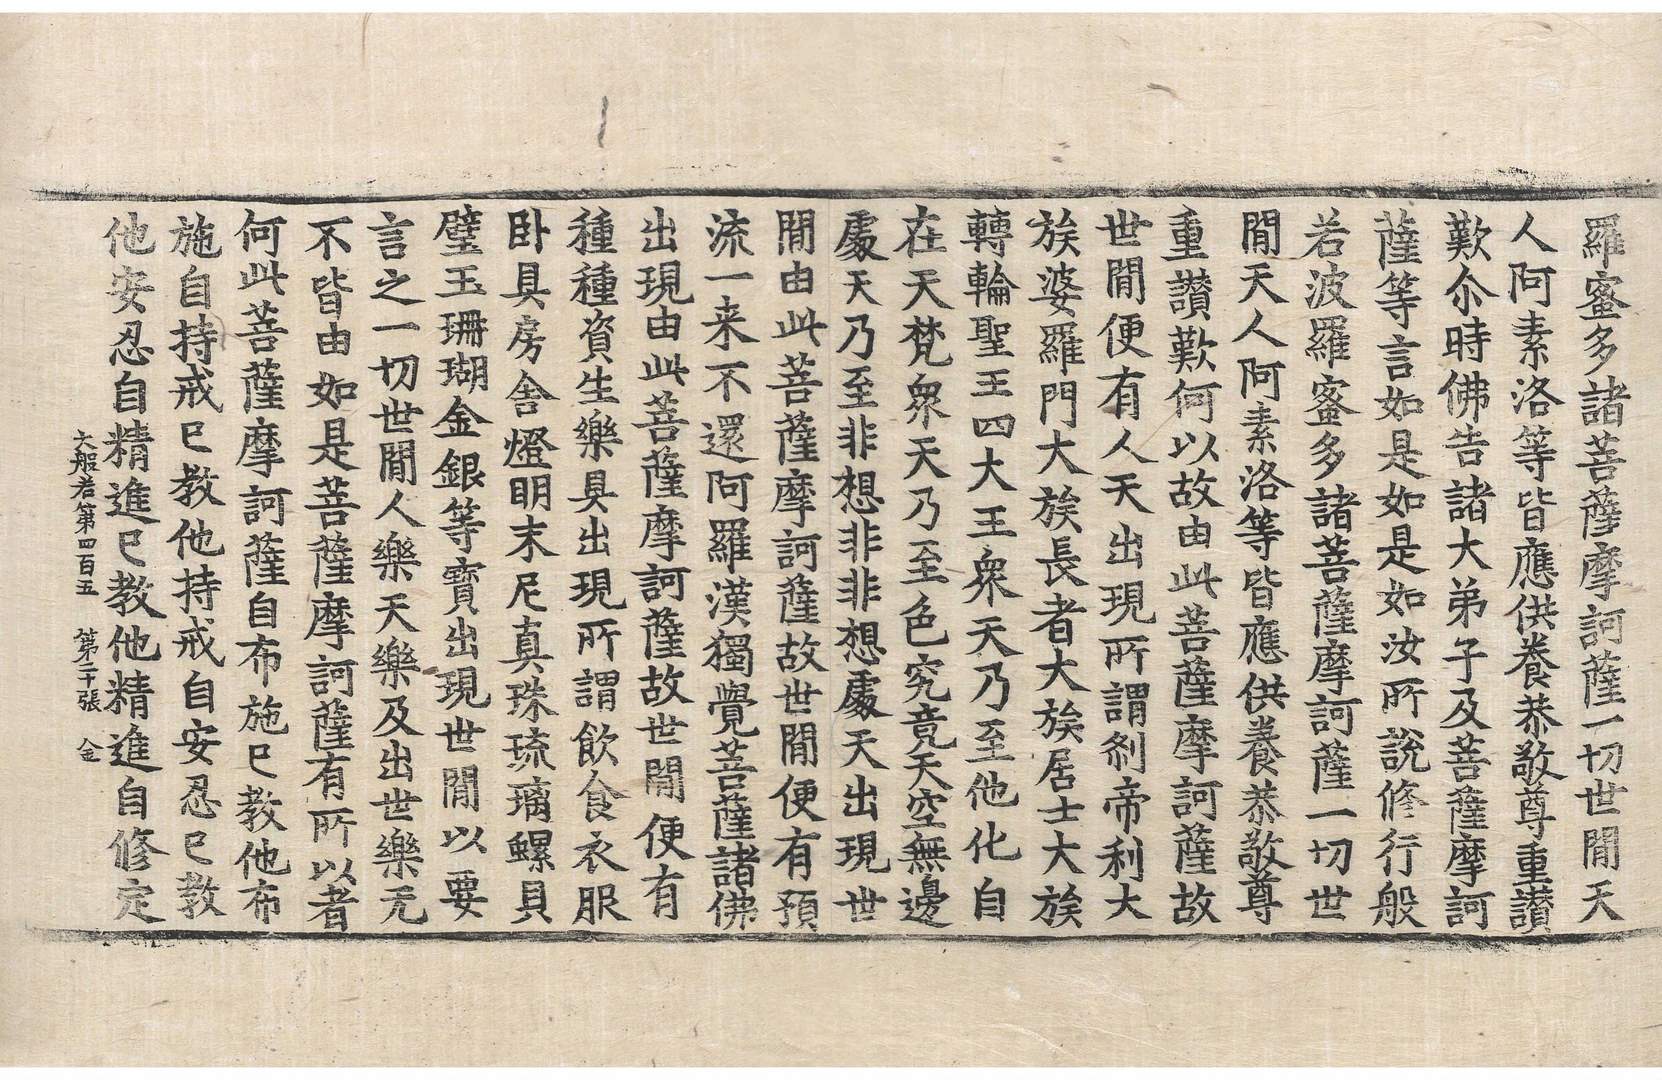 羅蜜多諸菩薩摩訶薩一切世閒天
人阿素洛等皆應供養恭敬尊重讃
歎尒時佛告諸大弟子及菩薩摩訶
薩等言如是如是如汝所說修行般
若波羅蜜多諸菩薩摩訶薩一切世
閒天人阿素洛等皆應供養恭敬尊
重讃歎何以故由此菩薩摩訶薩故
世閒便有人天出現所謂刹帝利大
族婆羅門大族長者大族居士大族
轉輪聖王四大王衆天乃至他化自
在天梵衆天乃至色究竟天空無邊
處天乃至非想非非想處天出現世
閒由此菩薩摩訶薩故世閒便有預
流一来不還阿羅漢獨覺菩薩諸佛
出現由此菩薩摩訶薩故世閒便有
種種資生樂具出現所謂飮食衣服
卧具房舍燈明末尼真珠琉璃螺貝
璧玉珊瑚金銀等寶出現世閒以要
言之一切世閒人樂天樂及出世樂无
不皆由如是菩薩摩訶薩有所以者
何此菩薩摩訶薩自布施已教他布
施自持戒已教他持戒自安忍已教
他安忍自精進已教他精進自修定
大般若第四百五 第二十張 金